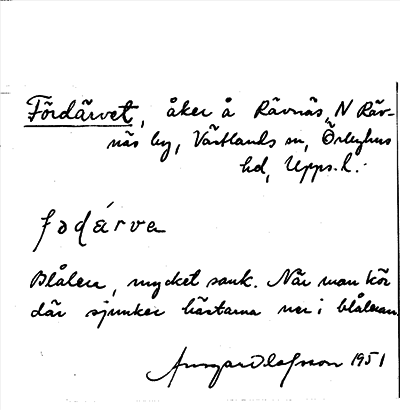 Fördärvet, åker å Rävnäs, N Räv-
näs by, Västlands sn, Örbyhus
hd, Upps. l.:
fɷdárva
Blålera, mycket sank. När man kör
där sjunker hästarna ner i blåleran.
Ansgar Olofsson 1951